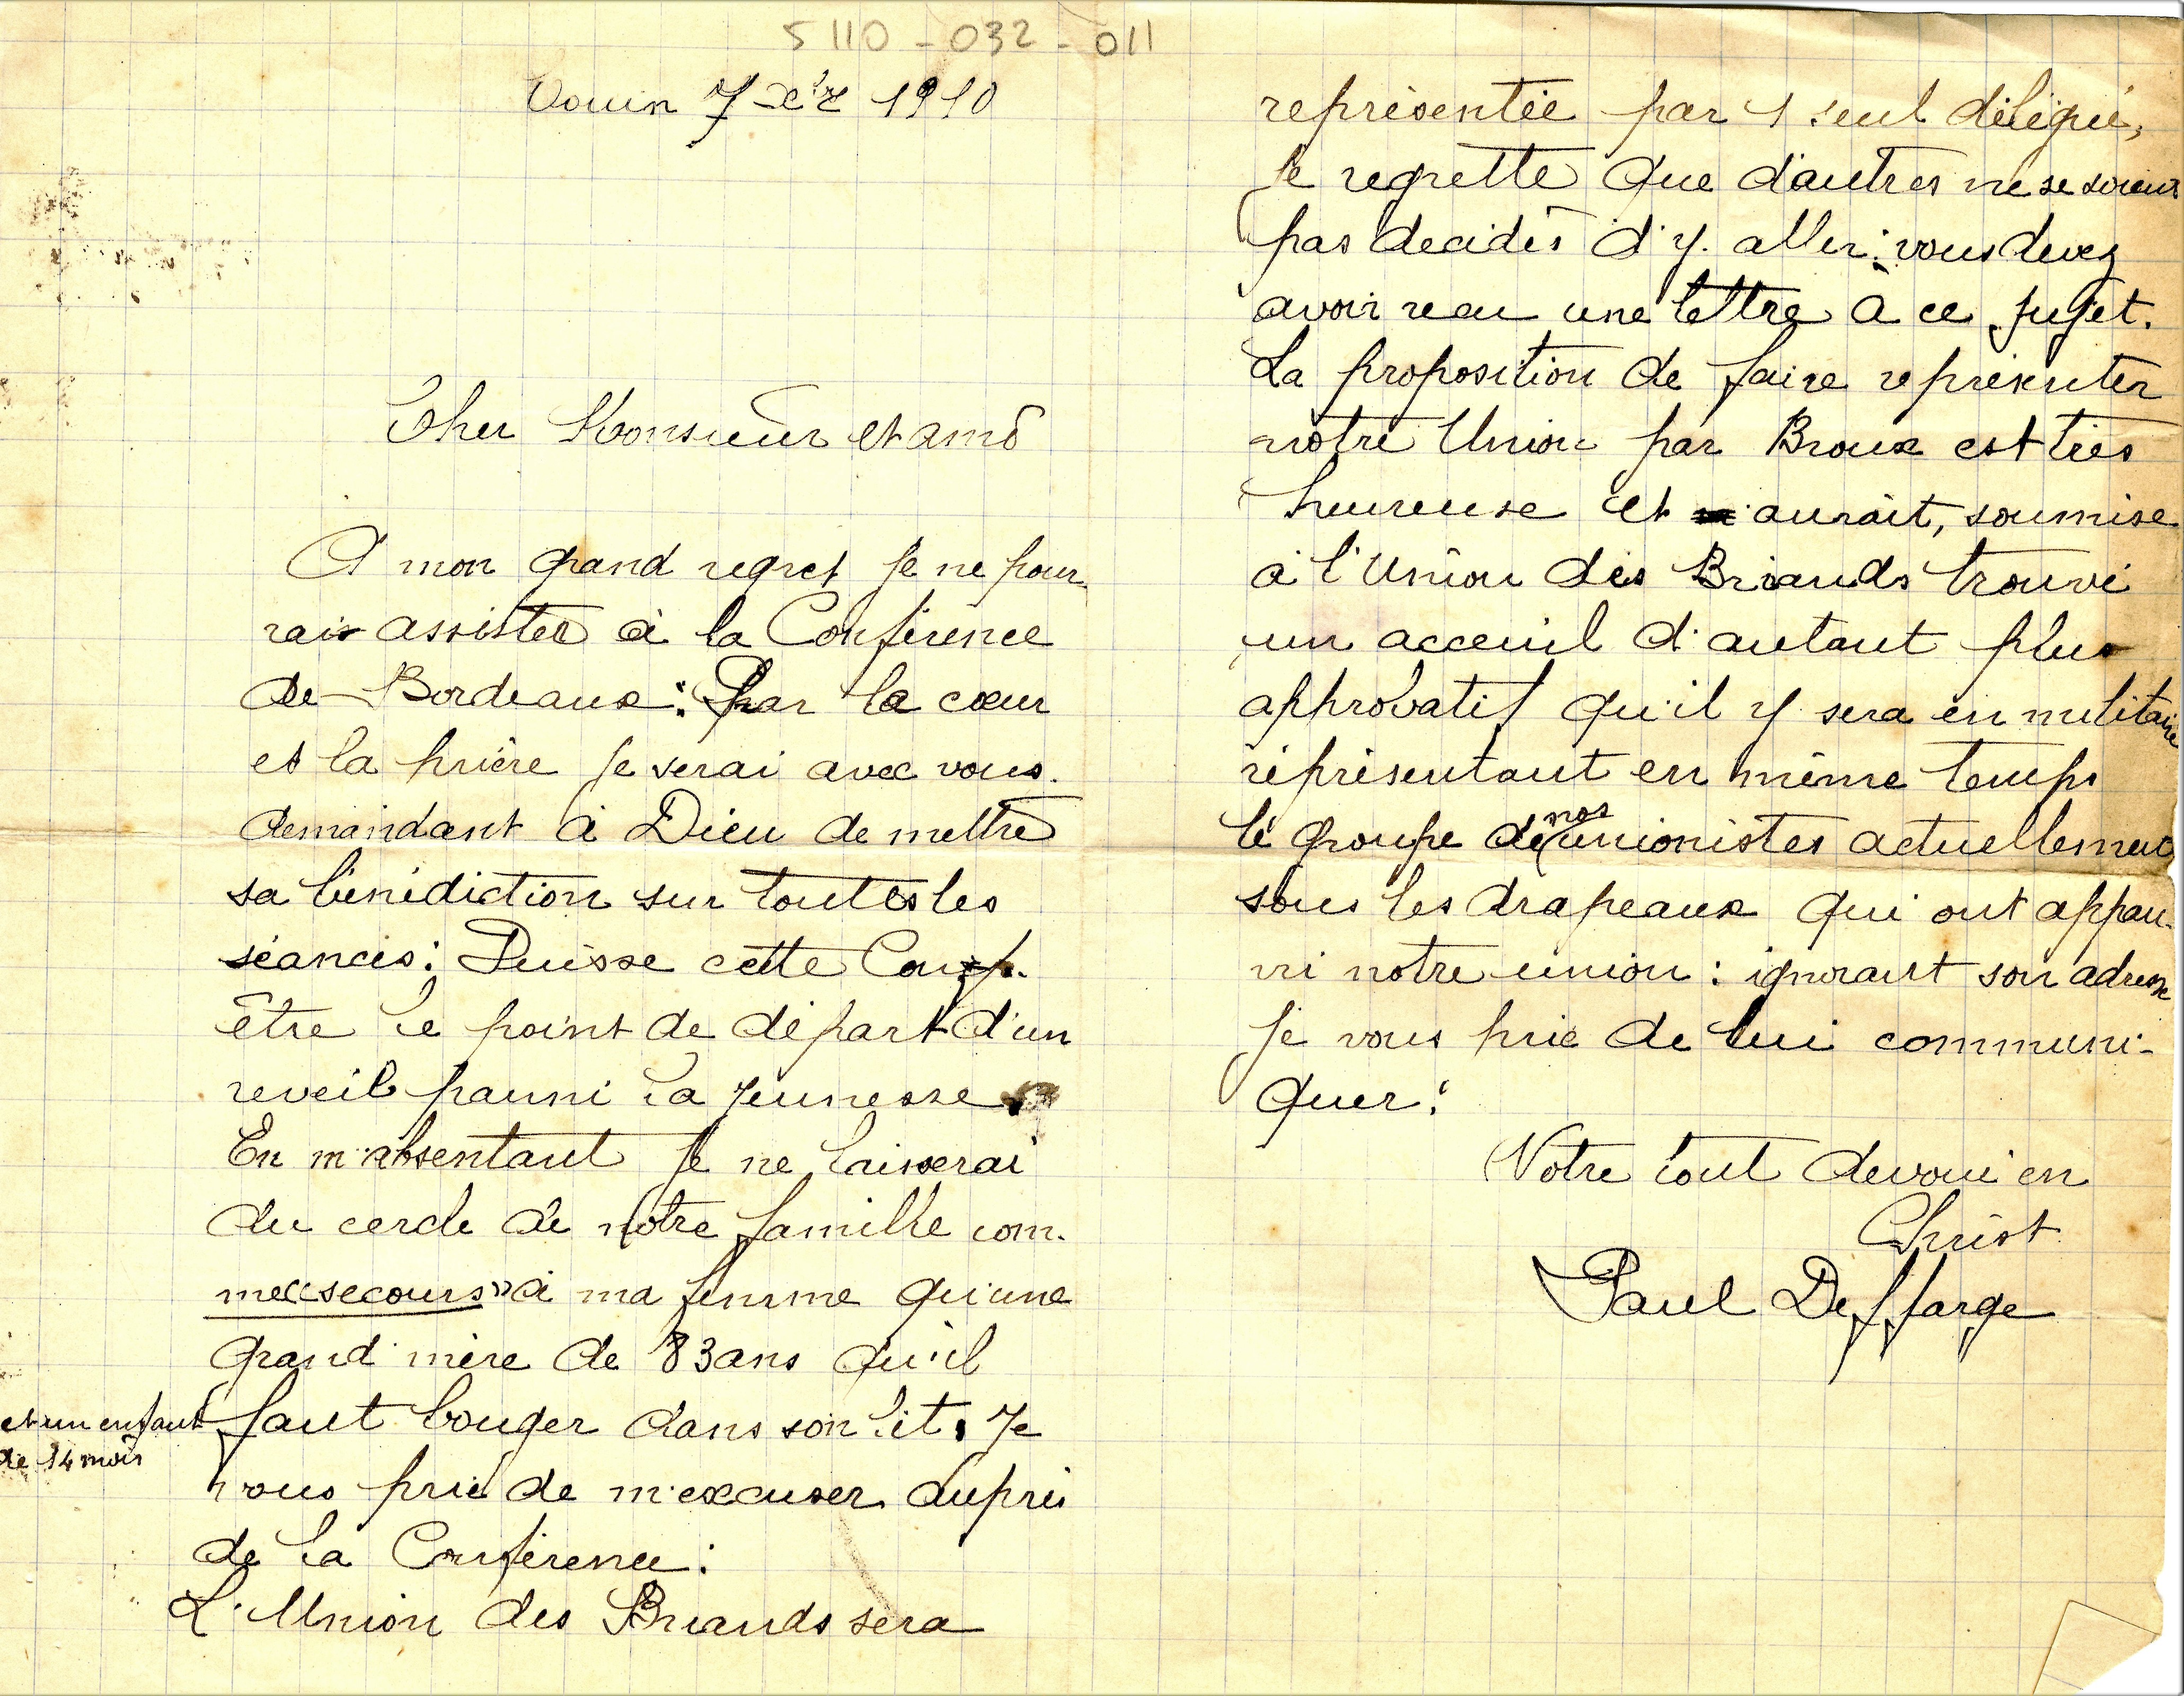 5110-032-011
7 1910
Cher Monsieur et ami
A mon grand regret je ne pour-
rais assister à la Conférence
de Bordeaux : Par le cœur
et la prière je serai avec vous.
demandant à Dieu de mettre
sa bénédiction sur toutes les
séances : Puisse cette Conf.
être le point de départ d'un
reveil parmi la jeunesse.
En m'absentant je ne laisserai
du cercle de notre famille com-
me « secours » à ma femme qu'une
grand mère de 83 ans qu'il
et un enfant
de 14 mois
faut bouger dans son lit. Je
vous prie de m'excuser auprès
de la Conférence :
L'Union des Briands sera
représentée par 1 seul délégué,
je regrette que d'autres ne se soient
pas decidés d'y aller : vous devez
avoir reçu une lettre à ce sujet.
La proposition de faire représenter
notre Union par Broux est très
heureuse et aurait, soumise
à l'Union des Briands trouvé
un acceuil d'autant plus
approbatif qu'il y sera en militaire
représentant en même temps
le groupe de nos unionistes actuellement
sous les drapeaux qui ont appau-
vri notre union : ignorant son adresse
je vous prie de lui communi-
quer :
Votre tout devoué en
Christ
Paul Deffarge